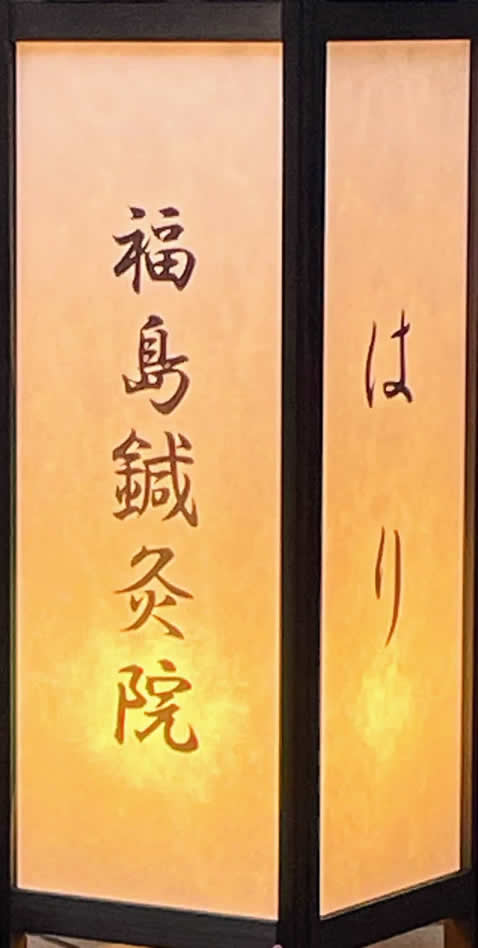 福島鍼灸院
はり